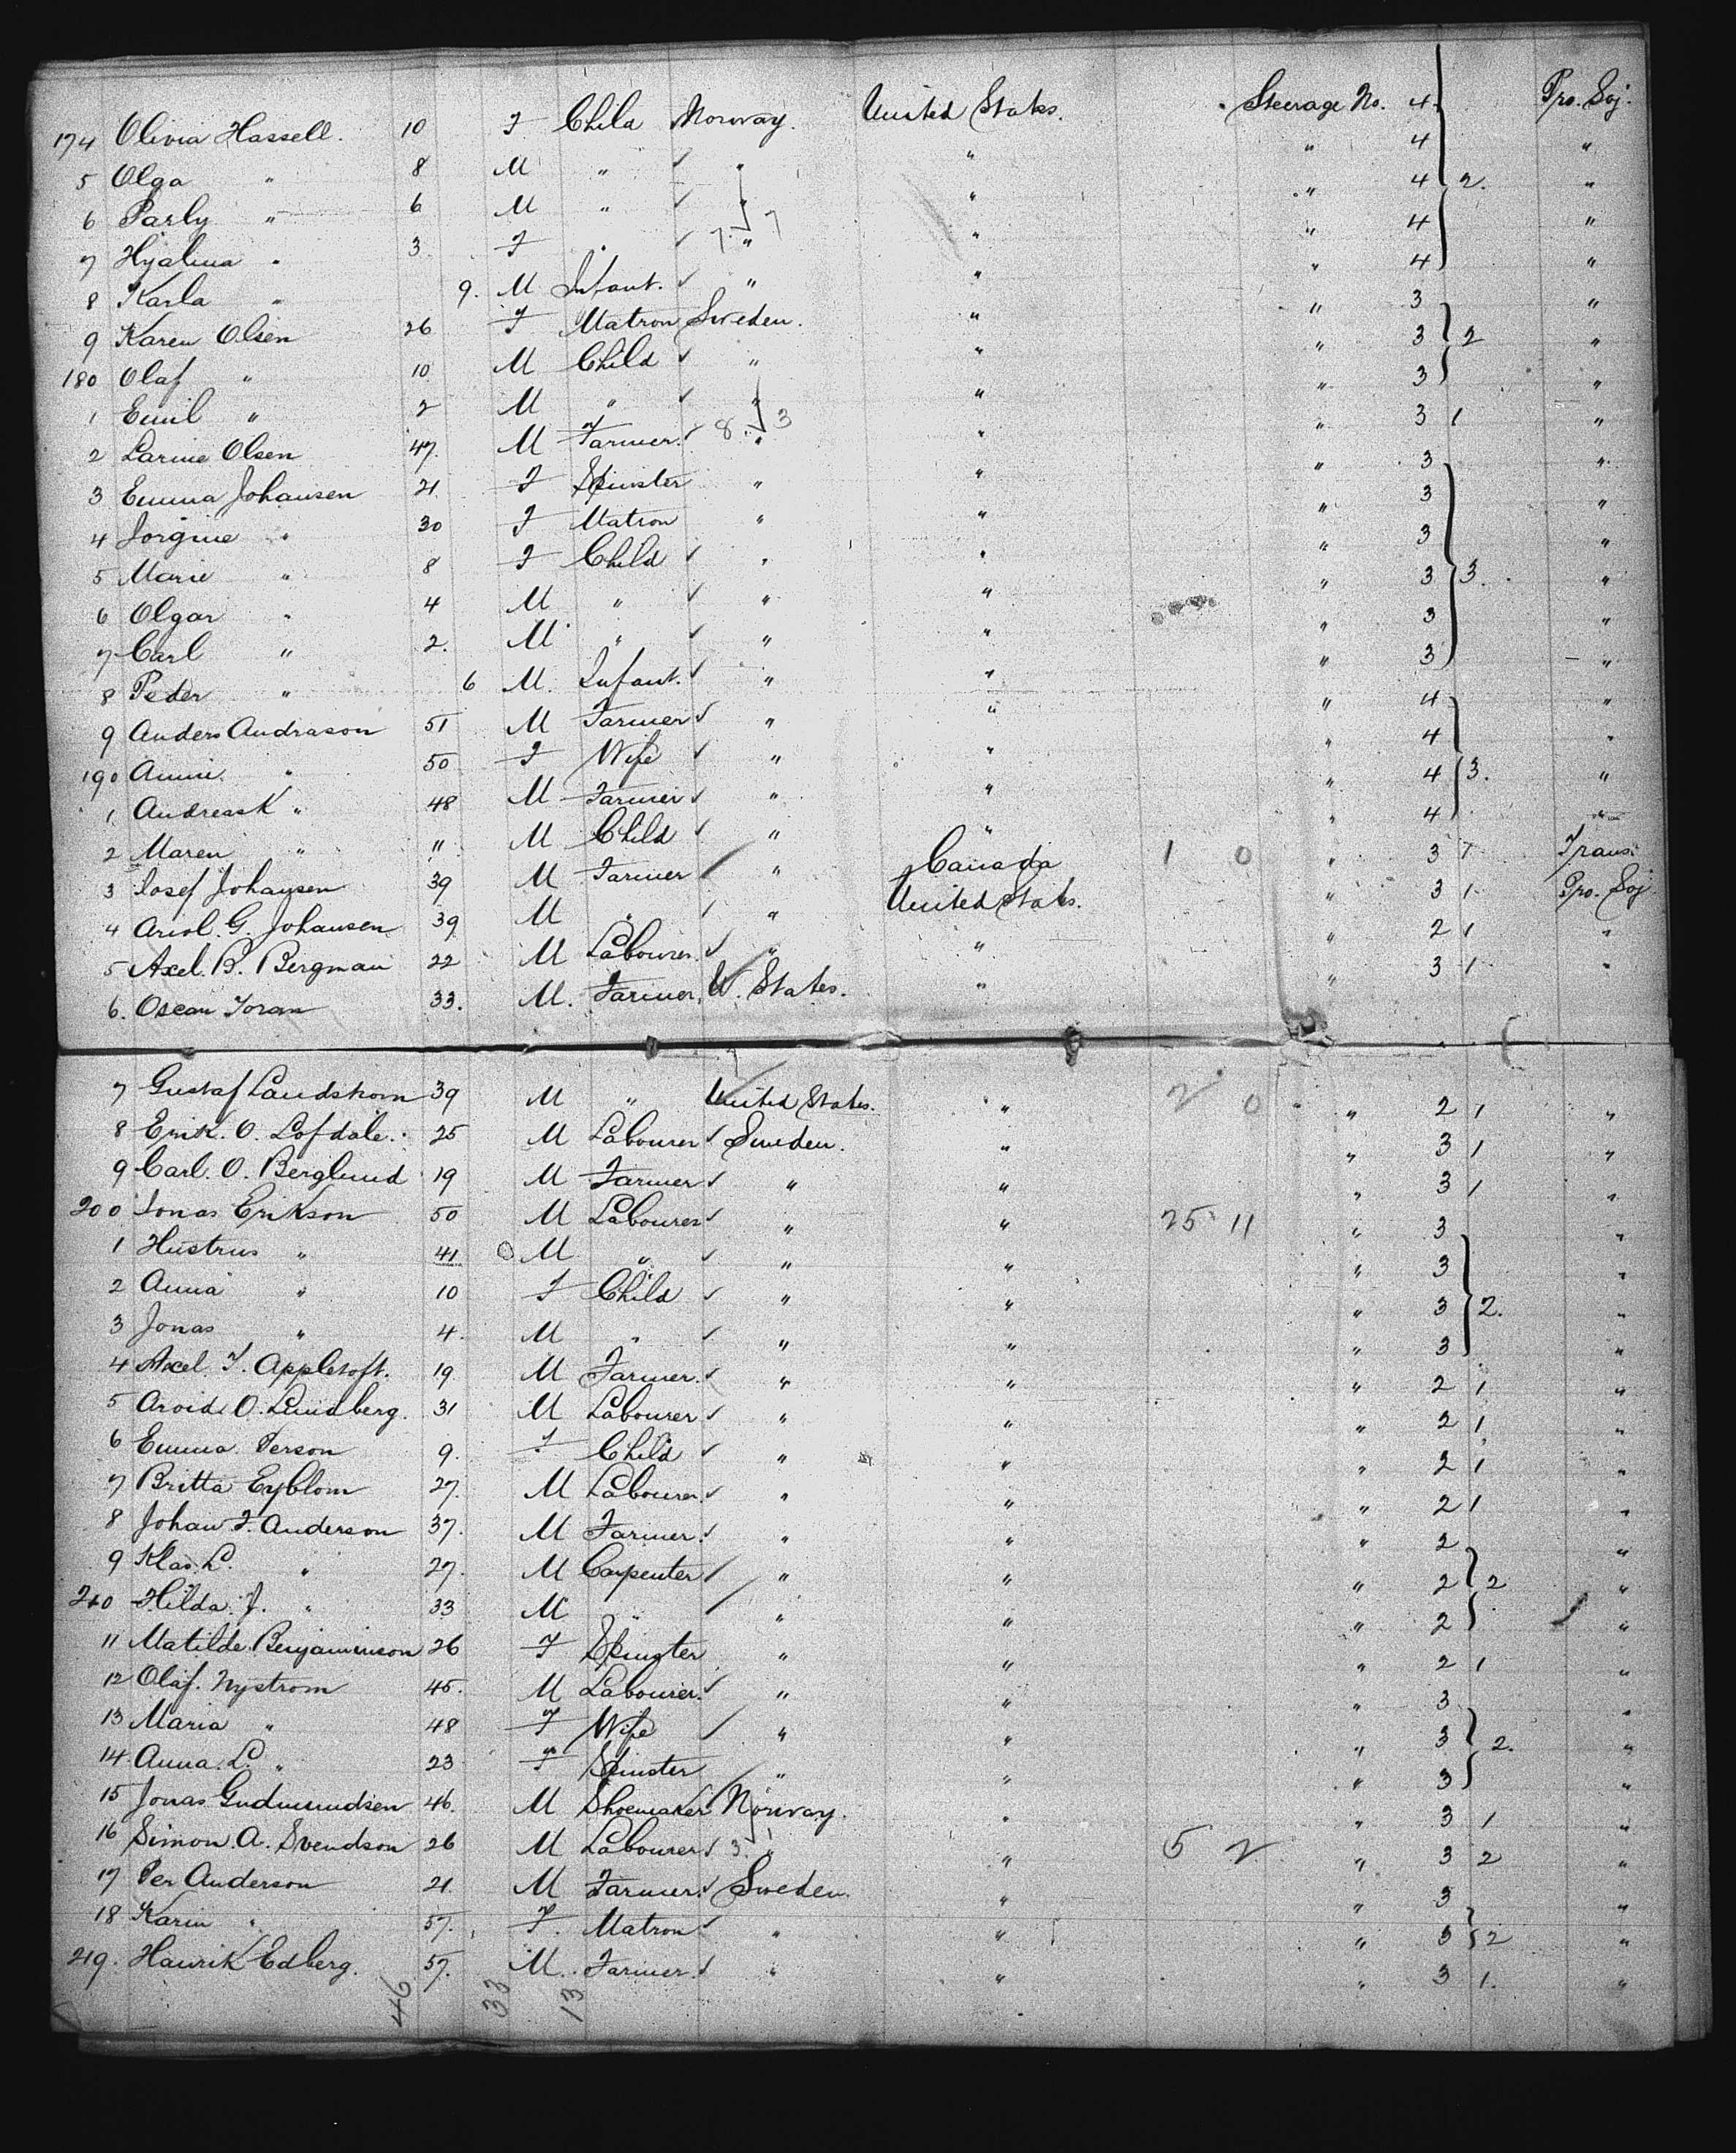 174 Olivia Hassell. 10 F Child Norway. United States. Steerage No. 4. Pro. Soj.
5 Olga " 8 M " " " " 4 "
6 Parly " 6 M " " " " 4 2. "
7 Hjalma " 3 F " 7 7 " " " 4 "
8 Karla " 9. M Infant. " " " 4 "
9 Karen Olsen 26 F Matron Sweden. " " 3 "
180 Olaf " 10 M Child " " " 3 2 "
1 Emil " 2 M " " " " 3 "
2 Larine Olsen 47. M Farmer. 8. 3 " " " 3 1 "
3 Emma Johansen 21. F Spinster " " " 3 "
4 Jorgine " 30 F Matron " " " 3 "
5 Marie " 8 F Child " " " 3 "
6 Olgar " 4 M " " " " 3 3. "
7 Carl " 2. M " " " " 3 "
8 Peder " 6 M. Infant. " " " 3 "
9 Anders Andrason 51 M Farmer " " " 4 "
190 Annie. " 50 F Wife " " " 4 "
1 Andreas K " 48 M Farmer " " " 4 3. "
2 Maren " " M Child " " " 4 "
3 Josef Johansen 39 M Farmer " Canada 1 0 " 3 1 Trans.
4 Ariol. G. Johansen 39 M " " United States. " 3 1 Pro. Soj
5 Axel. B. Bergman 22 M Labourer " " " 2 1 "
6. Oscar Toran 33. M. Farmer, U. States. " " 3 1 "
7 Gustaf Landstrom 39 M " United States. " 2 0 " 2 1 "
8 Erik. O. Lofdale. 25 M Labourer Sweden. " " 3 1 "
9 Carl. O. Berglund 19 M Farmer " " " 3 1 "
200 Jonas Erikson 50 M Labourer " " 25 11 " 3 "
1 Hustrus " 41 M " " " " 3 "
2 Anna " 10 F Child " " " 3 2. "
3 Jonas " 4. M " " " " 3 "
4 Axel. T. Appletoft. 19. M Farmer. " " " 2 1 "
5 Arvid. O. Lundberg. 31 M Labourer " " " 2 1 "
6 Emma. Person 9. F Child " " " 2 1 "
7 Britta Eyblom 27. M Labourer. " " " 2 1 "
8 Johan F. Anderson 37. M Farmer. " " " 2 "
9 Klas. L. " 27. M Carpenter " " " 2 2 "
210 Hilda. J. " 33 M " " " " 2 "
11 Matilde Benjaminson 26 F Spinster " " " 2 1 "
12 Olaf. Nystrom 45. M Labourer. " " " 3 "
13 Maria " 48 F Wife " " " 3 2. "
14. Anna. L. " 23 F Spinster " " " 3 "
15 Jonas Gudmundsen 46. M Shoemaker Norway. " " 3 1 "
16 Simon. A. Svendson 26 M Labourer 3. 1 " " 5 2 " 3 2 "
17 Per Anderson 21. M Farmer. Sweden. " " 3 "
18 Karin " 57. F. Matron " " " 3 2 "
219. Hanrik Edberg. 57. M. Farmer. " " " 3 1. "
46 33 13